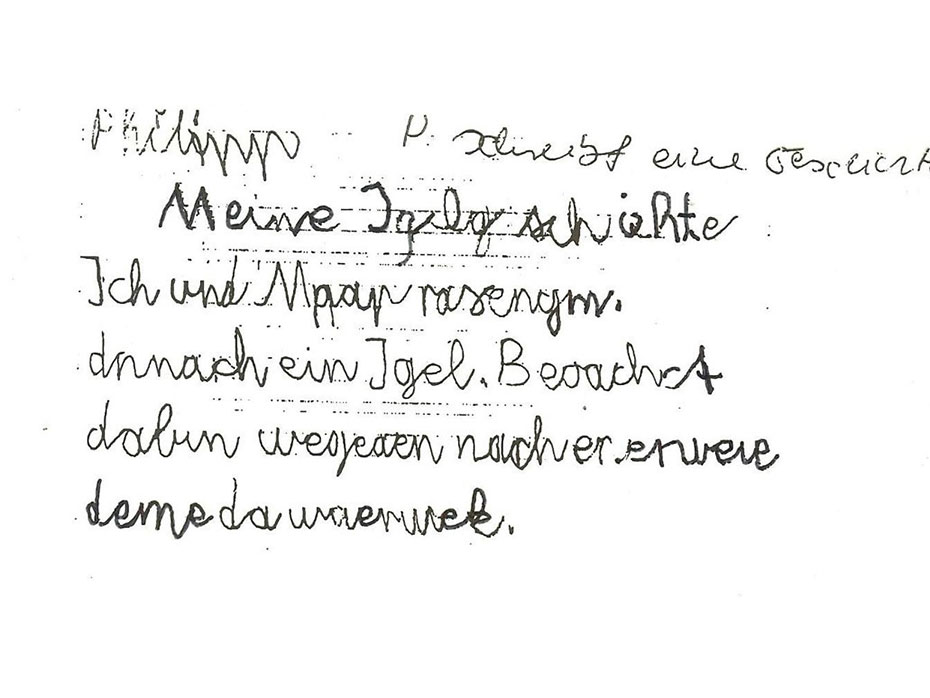 Philipp P. schreibt eine Geschicht
Meine Igelgschichte
Ich und Mpap rasengm.
dnnach ein Igel. Beoachst
dabin wegegen nacher. erweie
deme da waerwek.